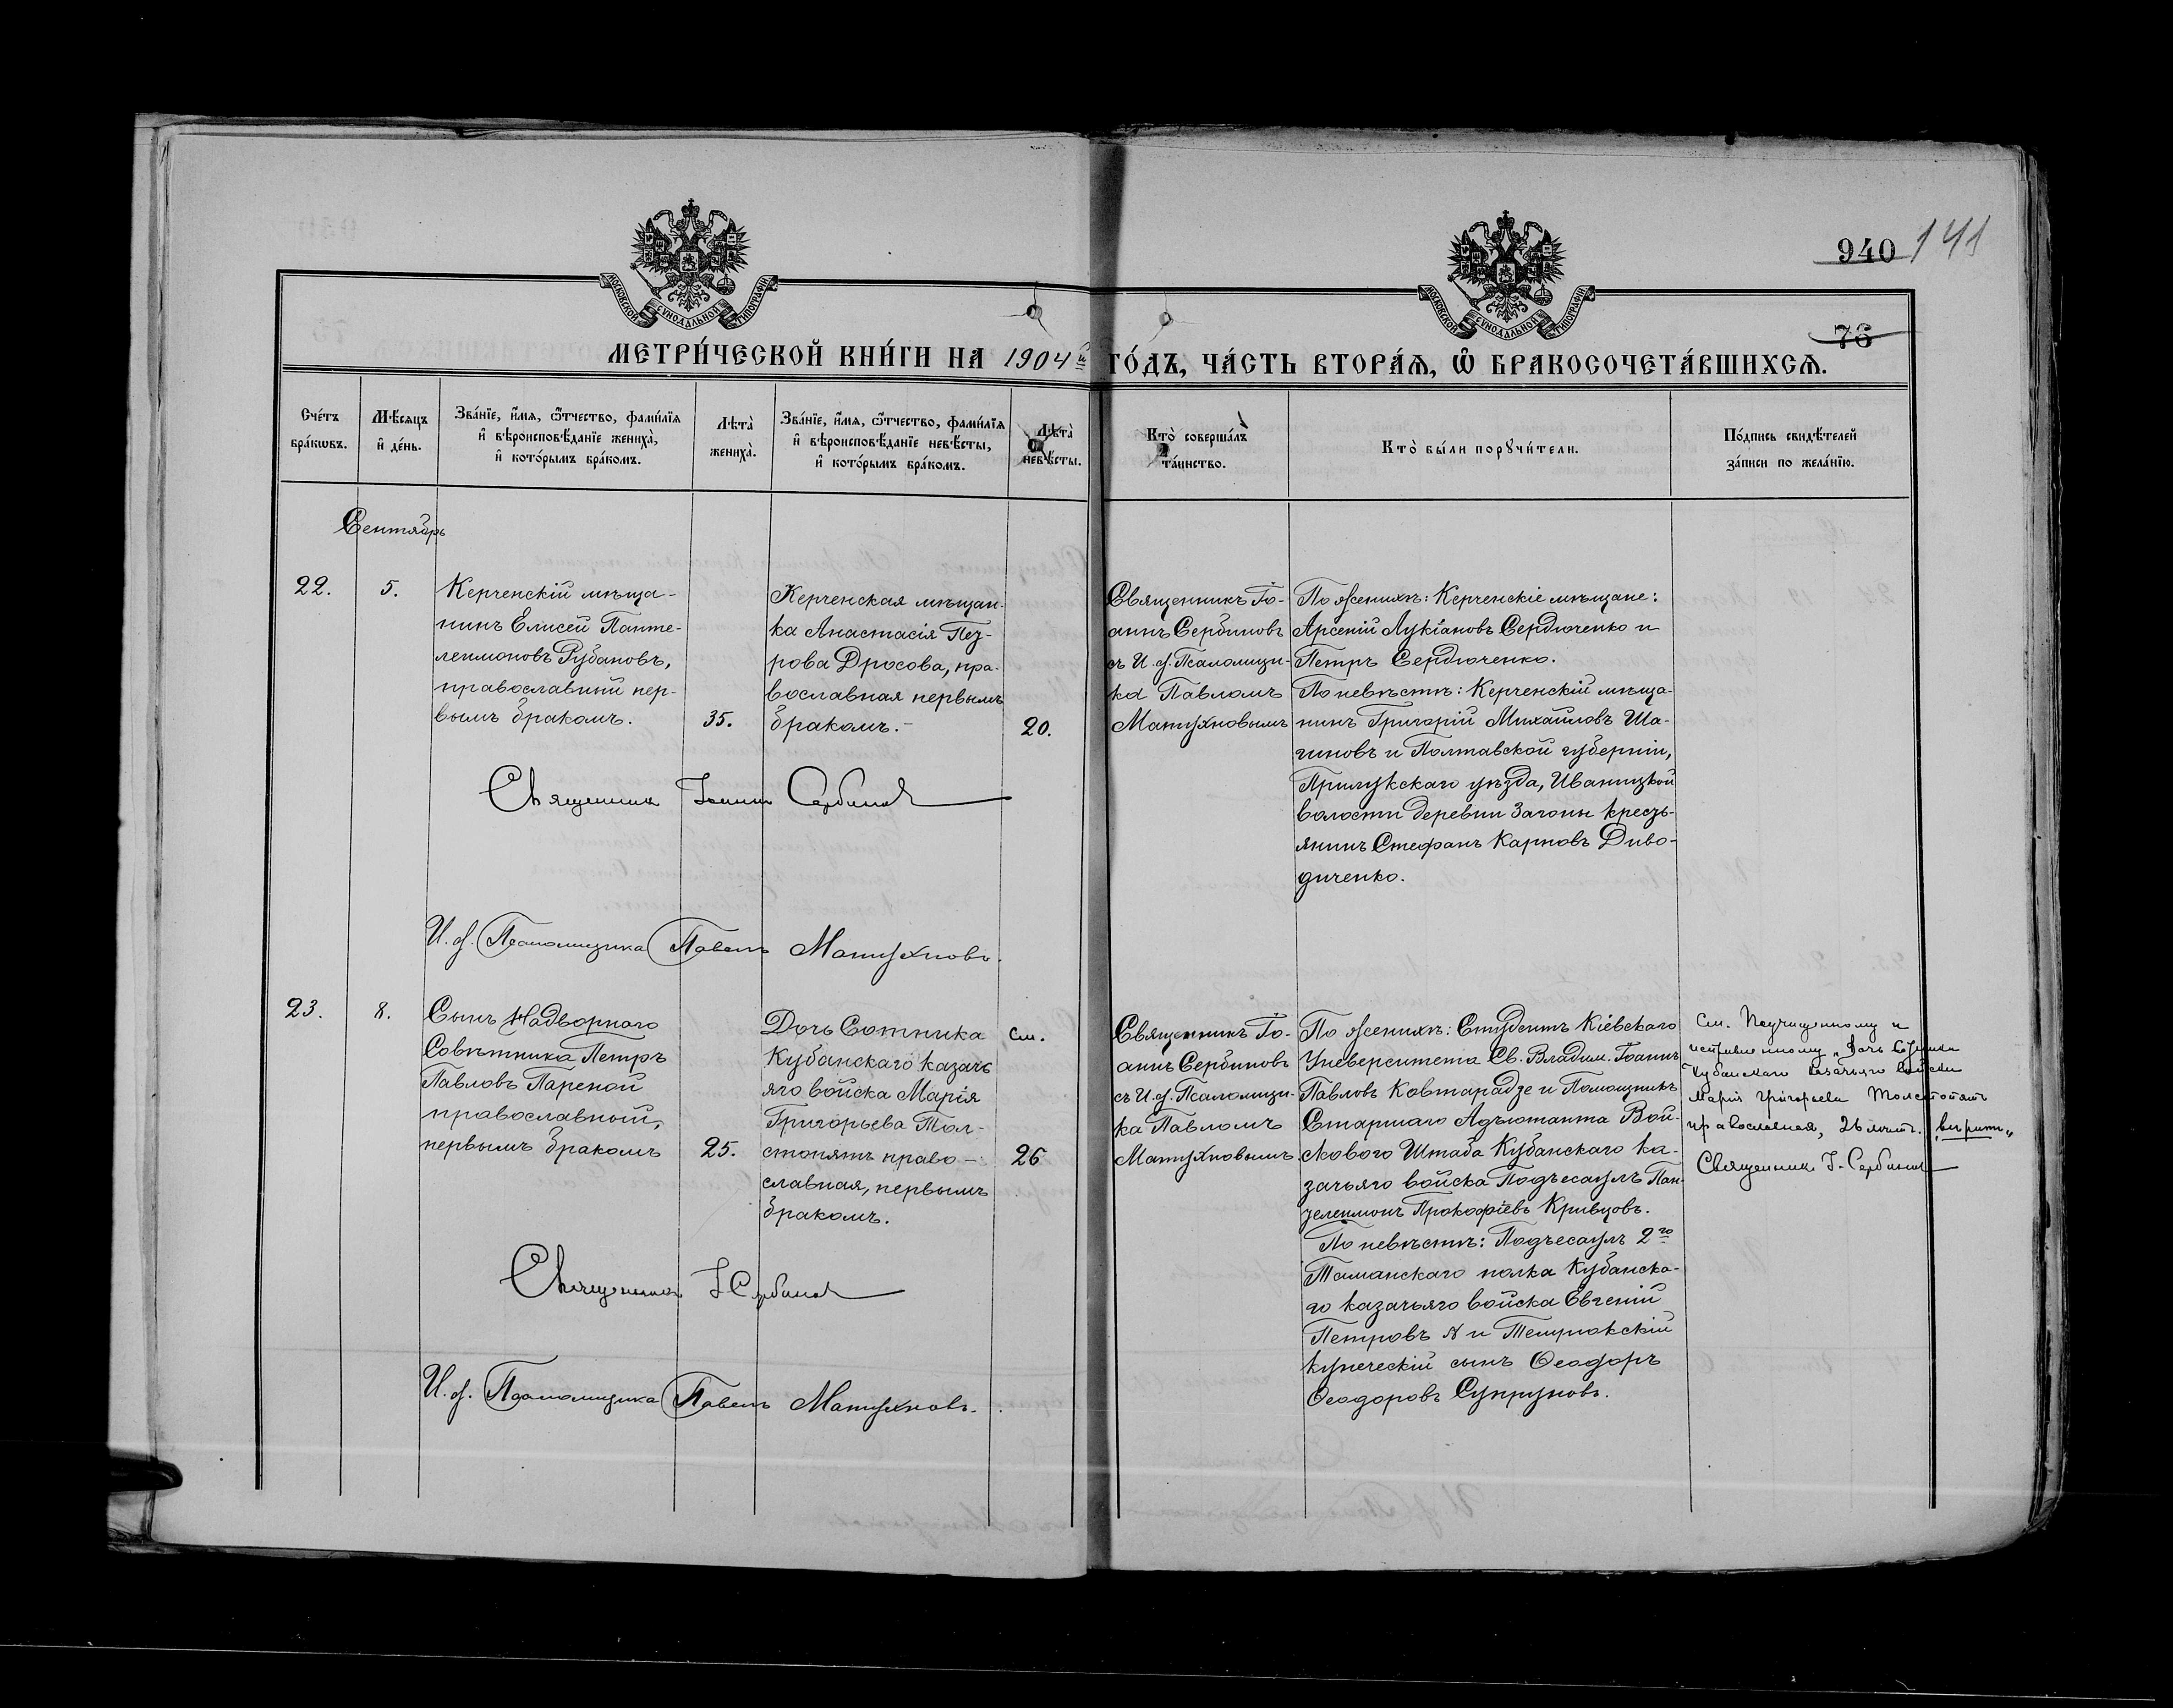 940 141
МОСКОВСКОЙ СУНОДАЛЬНОЙ ТИПОГРАФІИ
МОСКОВСКОЙ СУНОДАЛЬНОЙ ТИПОГРАФІИ
76
МЕТРИ́ЧЕСКОЙ КНИ́ГИ НА 1904 й ГО́ДЪ, ЧА́СТЬ ВТОРА́Ѧ, Ѽ БРАКОСОЧЕТА́ВШИХСѦ.
Сче́тъ
бра́кѡвъ.
Мѣ́сѧцъ
и҆ де́нь.
Зва́нїе, и҆́мѧ, ѻ҆́тчество, фами́лїѧ
и҆ вѣроисповѣ́данїе жениха̀,
и҆ кото́рымъ бра́комъ.
Лѣта̀
жениха̀.
Зва́нїе, и҆́мѧ, ѻ҆́тчество, фами́лїѧ
и҆ вѣроисповѣ́данїе невѣ́сты,
и҆ кото́рымъ бра́комъ.
Лѣта̀
невѣ́сты.
Кто̀ соверша́лъ
та́инство.
Кто̀ бы́ли порꙋчи́тели.
По́дпись свидѣ́телей
за́писи по жела́нїю.
Сентябрь
22.
5.
Керченскій мѣща-
нинъ Елисей Панте-
леимоновъ Рубановъ,
православный пер-
вымъ бракомъ.
35.
Керченская мѣщан-
ка Анастасія Пет-
рова Дросова, пра-
вославная первымъ
бракомъ.-
20.
Священникъ Іо-
аннъ Сербиновъ
съ И. д. Псаломщи-
ка Павломъ
Матухновымъ
По женихѣ: Керченскіе мѣщане:
Арсеній Лукіановъ Сердюченко и
Петръ Сердюченко.
По невѣстѣ: Керченскій мѣща-
нинъ Григорій Михайловъ Ша-
гиновъ и Полтавской губерніи,
Прилукскаго уѣзда, Иваницкой
волости деревни Загоны кресть-
янинъ Стефанъ Карповъ Диво-
диченко.
Священникъ Іоаннъ Сербиновъ
И. д. Псаломщика Павелъ Матухновъ.
23.
8.
Сынъ Надворнаго
Совѣтника Петръ
Павловъ Пареной
православный,
первымъ бракомъ
25.
Дочь Сотника
Кубанскаго казачь
яго войска Марія
Григорьева Тол-
стопятъ право-
славная, первымъ
бракомъ.
см.
26
Священникъ Іо-
аннъ Сербиновъ
съ И. д. Псаломщи-
ка Павломъ
Матухновымъ.
По женихѣ: Студентъ Кіевскаго
Университета Св. Владим. Іоаннъ
Павловъ Ковтарадзе и Помощникъ
Старшаго Адъютанта Вой-
скового Штаба Кубанскаго ка-
зачьяго войска Подъесаулъ Пан-
телеимонъ Прокофіевъ Кривцовъ.
По невѣстѣ: Подъесаулъ 2го
Таманскаго полка Кубанска-
го казачьяго войска Евгеній
Петровъ и Темрюкскій
купеческій сынъ Ѳеодоръ
Ѳеодоровъ Супруновъ.
См. Подчищенному и
исправленному „Дочь Сотника
Кубанскаго казачьяго войска
Марія Григорьева Толстопятъ
православная, 26 лѣтъ. „вѣрить„
Священникъ І. Сербиновъ
Священникъ І. Сербиновъ
И. д. Псаломщика Павелъ Матухновъ.